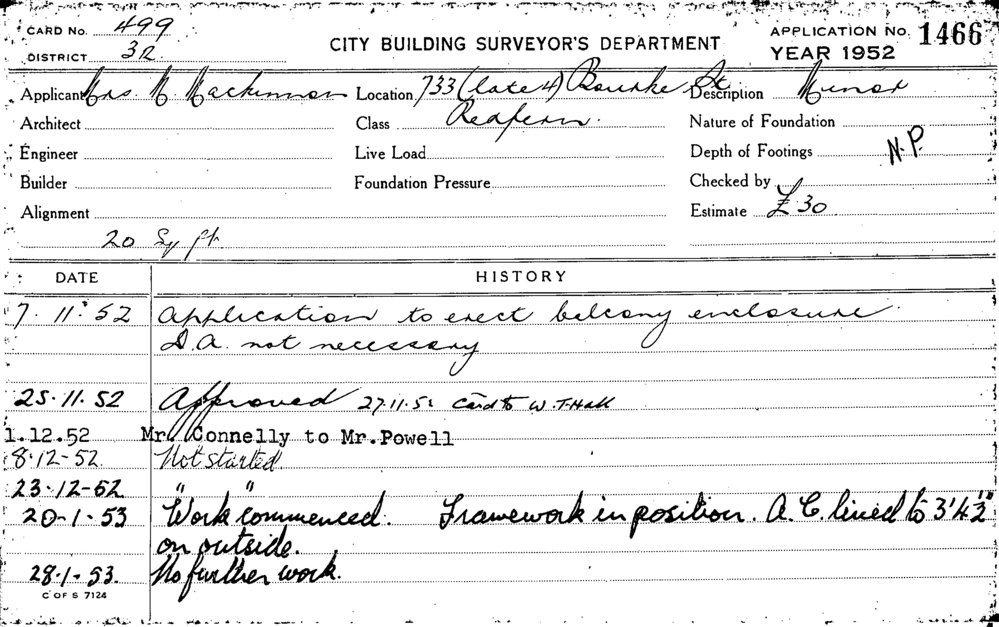 CARD No. 499
DISTRICT 32
CITY BUILDING SURVEYOR'S DEPARTMENT
APPLICATION No. 1466
YEAR 1952
Applicant Mrs. M. Mackinnon Location 733 (late 4) Bourke St. Description Minor
Architect Class Redfern. Nature of Foundation
Engineer Live Load Depth of Footings N.P.
Builder Foundation Pressure Checked by
Alignment Estimate £30
20 Sq ft.
DATE HISTORY
7.11.52 Application to erect balcony enclosure
D.A. not necessary
25.11.52 Approved 27.11.52 Card to W.T. Hall
1.12.52 Mr. Connelly to Mr. Powell
8-12-52. Not started.
23-12-52 " "
20-1-53 Work commenced. Framework in position. A.C. lined to 3'4½"
on outside.
28-1-53. No further work.
C OF S 7124